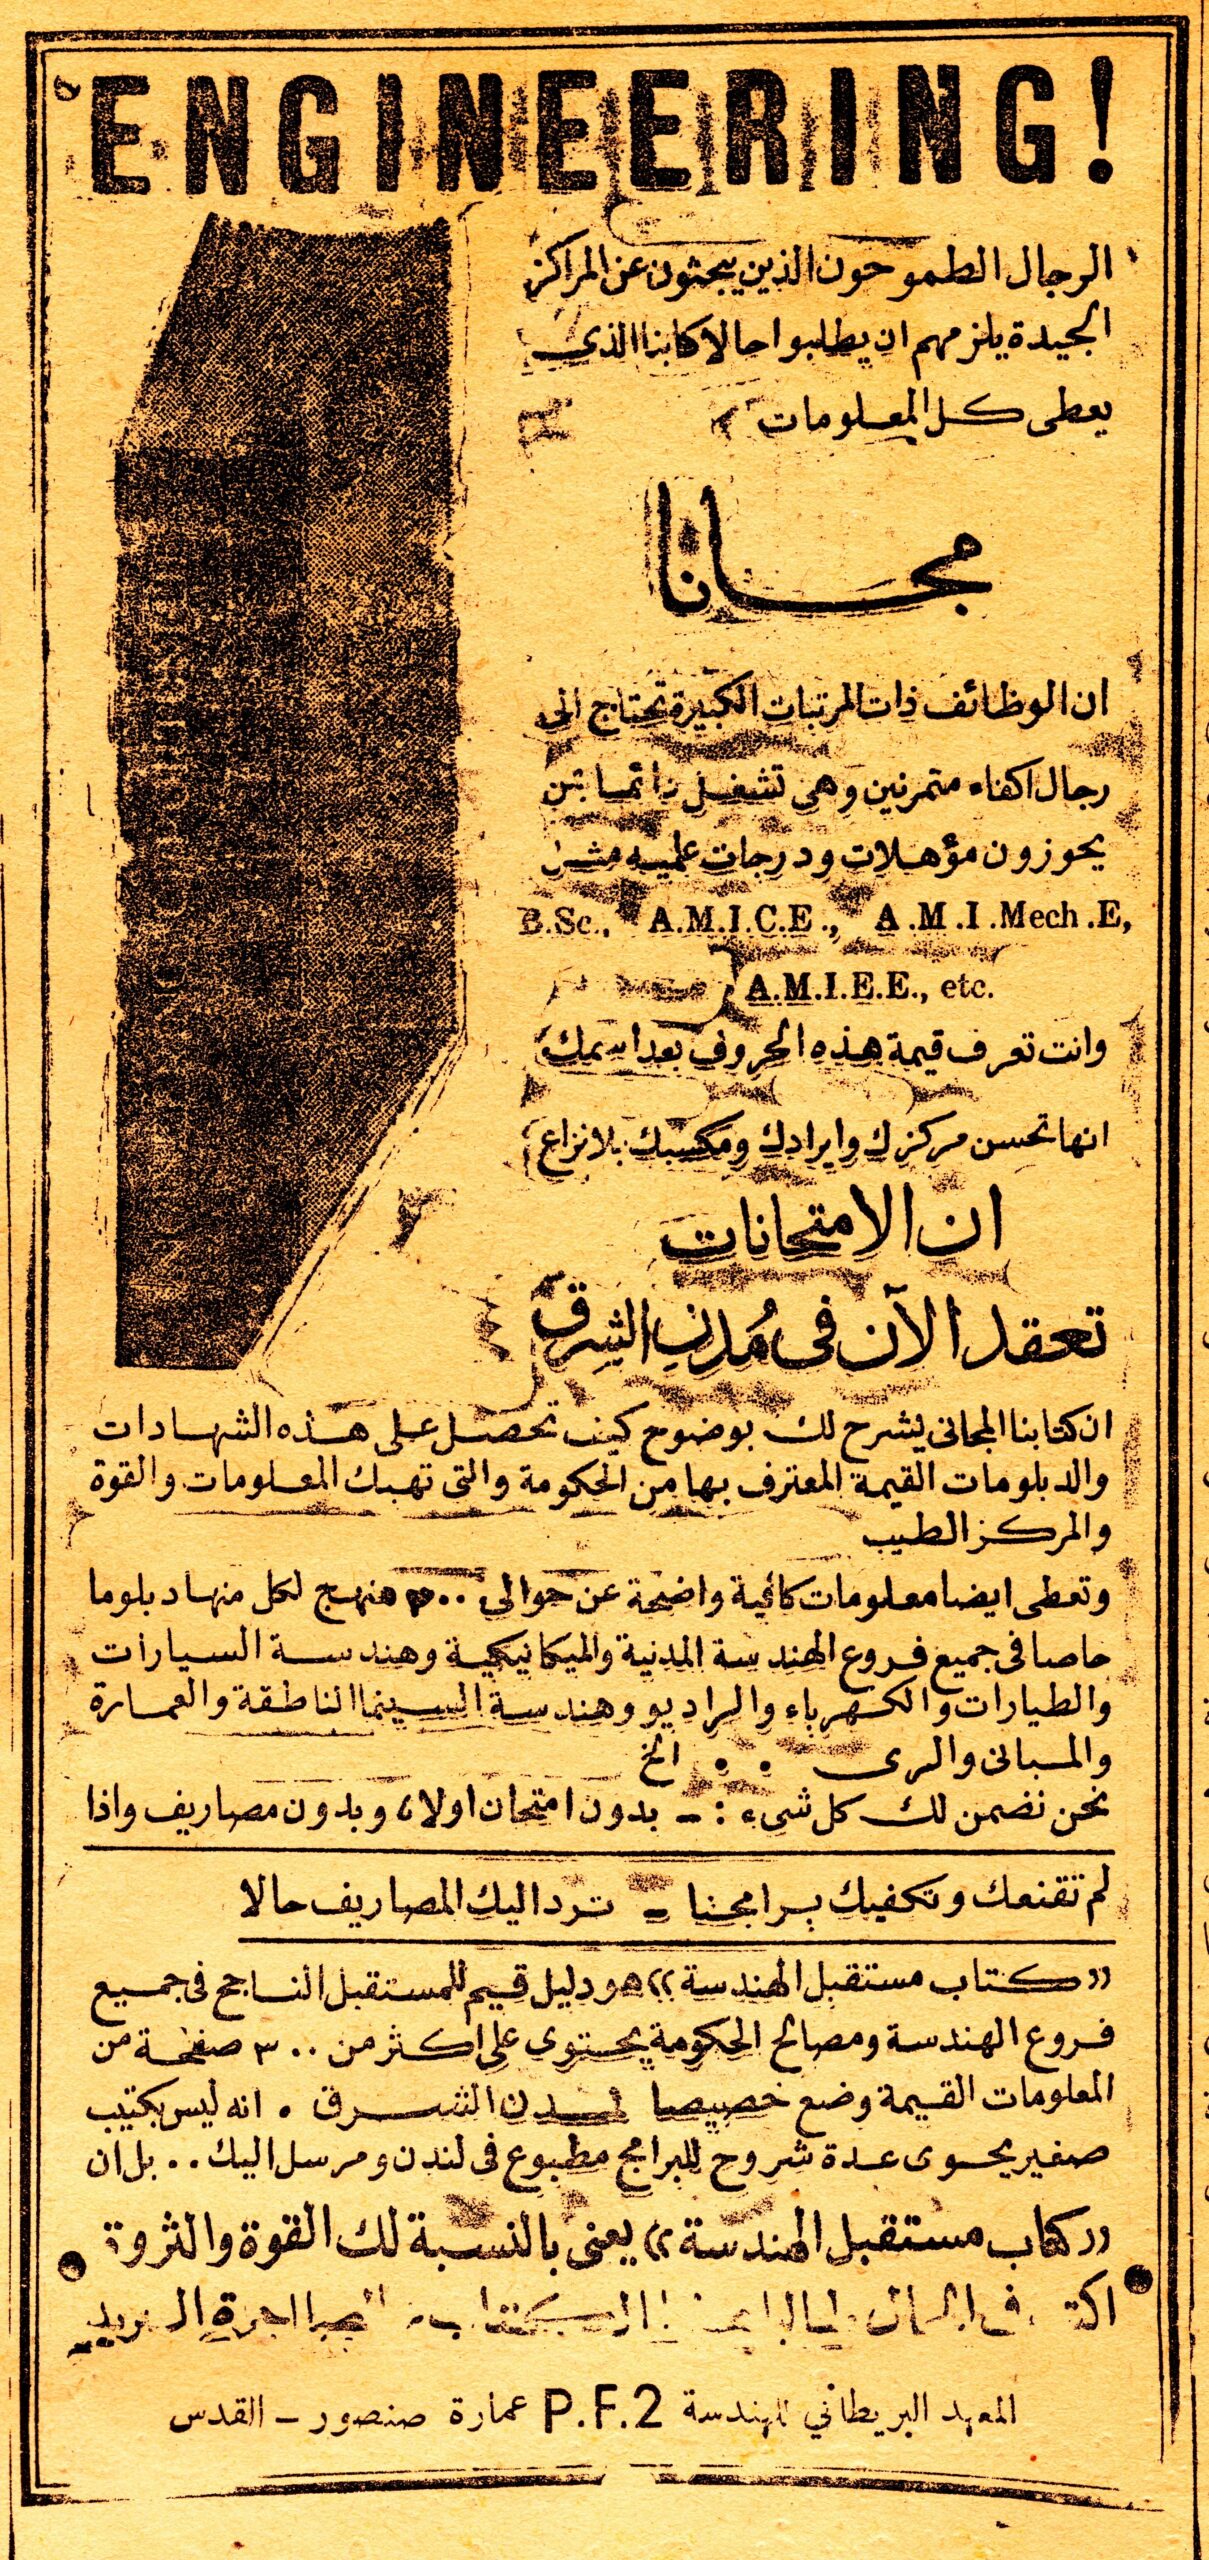 ENGINEERING!
الرجال الطموحون الذين يبحثون عن المراكز
الجيدة يلزمهم ان يطلبوا حالا كتابنا الذى
يعطى كل المعلومات
مجانا
ان الوظائف ذات المرتبات الكبيرة تحتاج الى
رجال اكفاء متمرنين وهى تشغل دائما بمن
يحوزون مؤهلات ودرجات علميه مثل
B.Sc., A.M.I.C.E., A.M.I.Mech.E,
A.M.I.E.E., etc.
وانت تعرف قيمة هذه الحروف بعد اسمك
انها تحسن مركزك وايرادك ومكسبك بلا نزاع
ان الامتحانات
تعقد الآن فى مُدن الشرق
ان كتابنا المجانى يشرح لك بوضوح كيف تحصل على هذه الشهادات
والدبلومات القيمة المعترف بها من الحكومة والتى تهبك المعلومات والقوة
والمركز الطيب
وتعطى ايضا معلومات كافية واضحة عن حوالى منهج لكل منها دبلوما
خاصا فى جميع فروع الهندسة المدنية والميكانيكية وهندسة السيارات
والطيارات والكهرباء والراديو وهندسة السينما الناطقة والعمارة
والمبانى والرى . . الخ
نحن نضمن لك كل شىء :ـ بدون امتحان اولا، وبدون مصاريف واذا
لم تقنعك وتكفيك برامجنا ـ ترد اليك المصاريف حالا
«كتاب مستقبل الهندسة» هو دليل قيم للمستقبل الناجح فى جميع
فروع الهندسة ومصالح الحكومة يحتوى على اكثر من ٣٠٠ صفحة من
المعلومات القيمة وضع خصيصا لمدن الشرق . انه ليس بكتيب
صغير يحوى عدة شروح للبرامج مطبوع فى لندن ومرسل اليك .. بل ان
«كتاب مستقبل الهندسة» يعنى بالنسبة لك القوة والثروة
اكتب فى الحال طالبا الكتاب اجرة البريد
المعهد البريطاني للهندسة P.F.2 عمارة صنصور ـ القدس